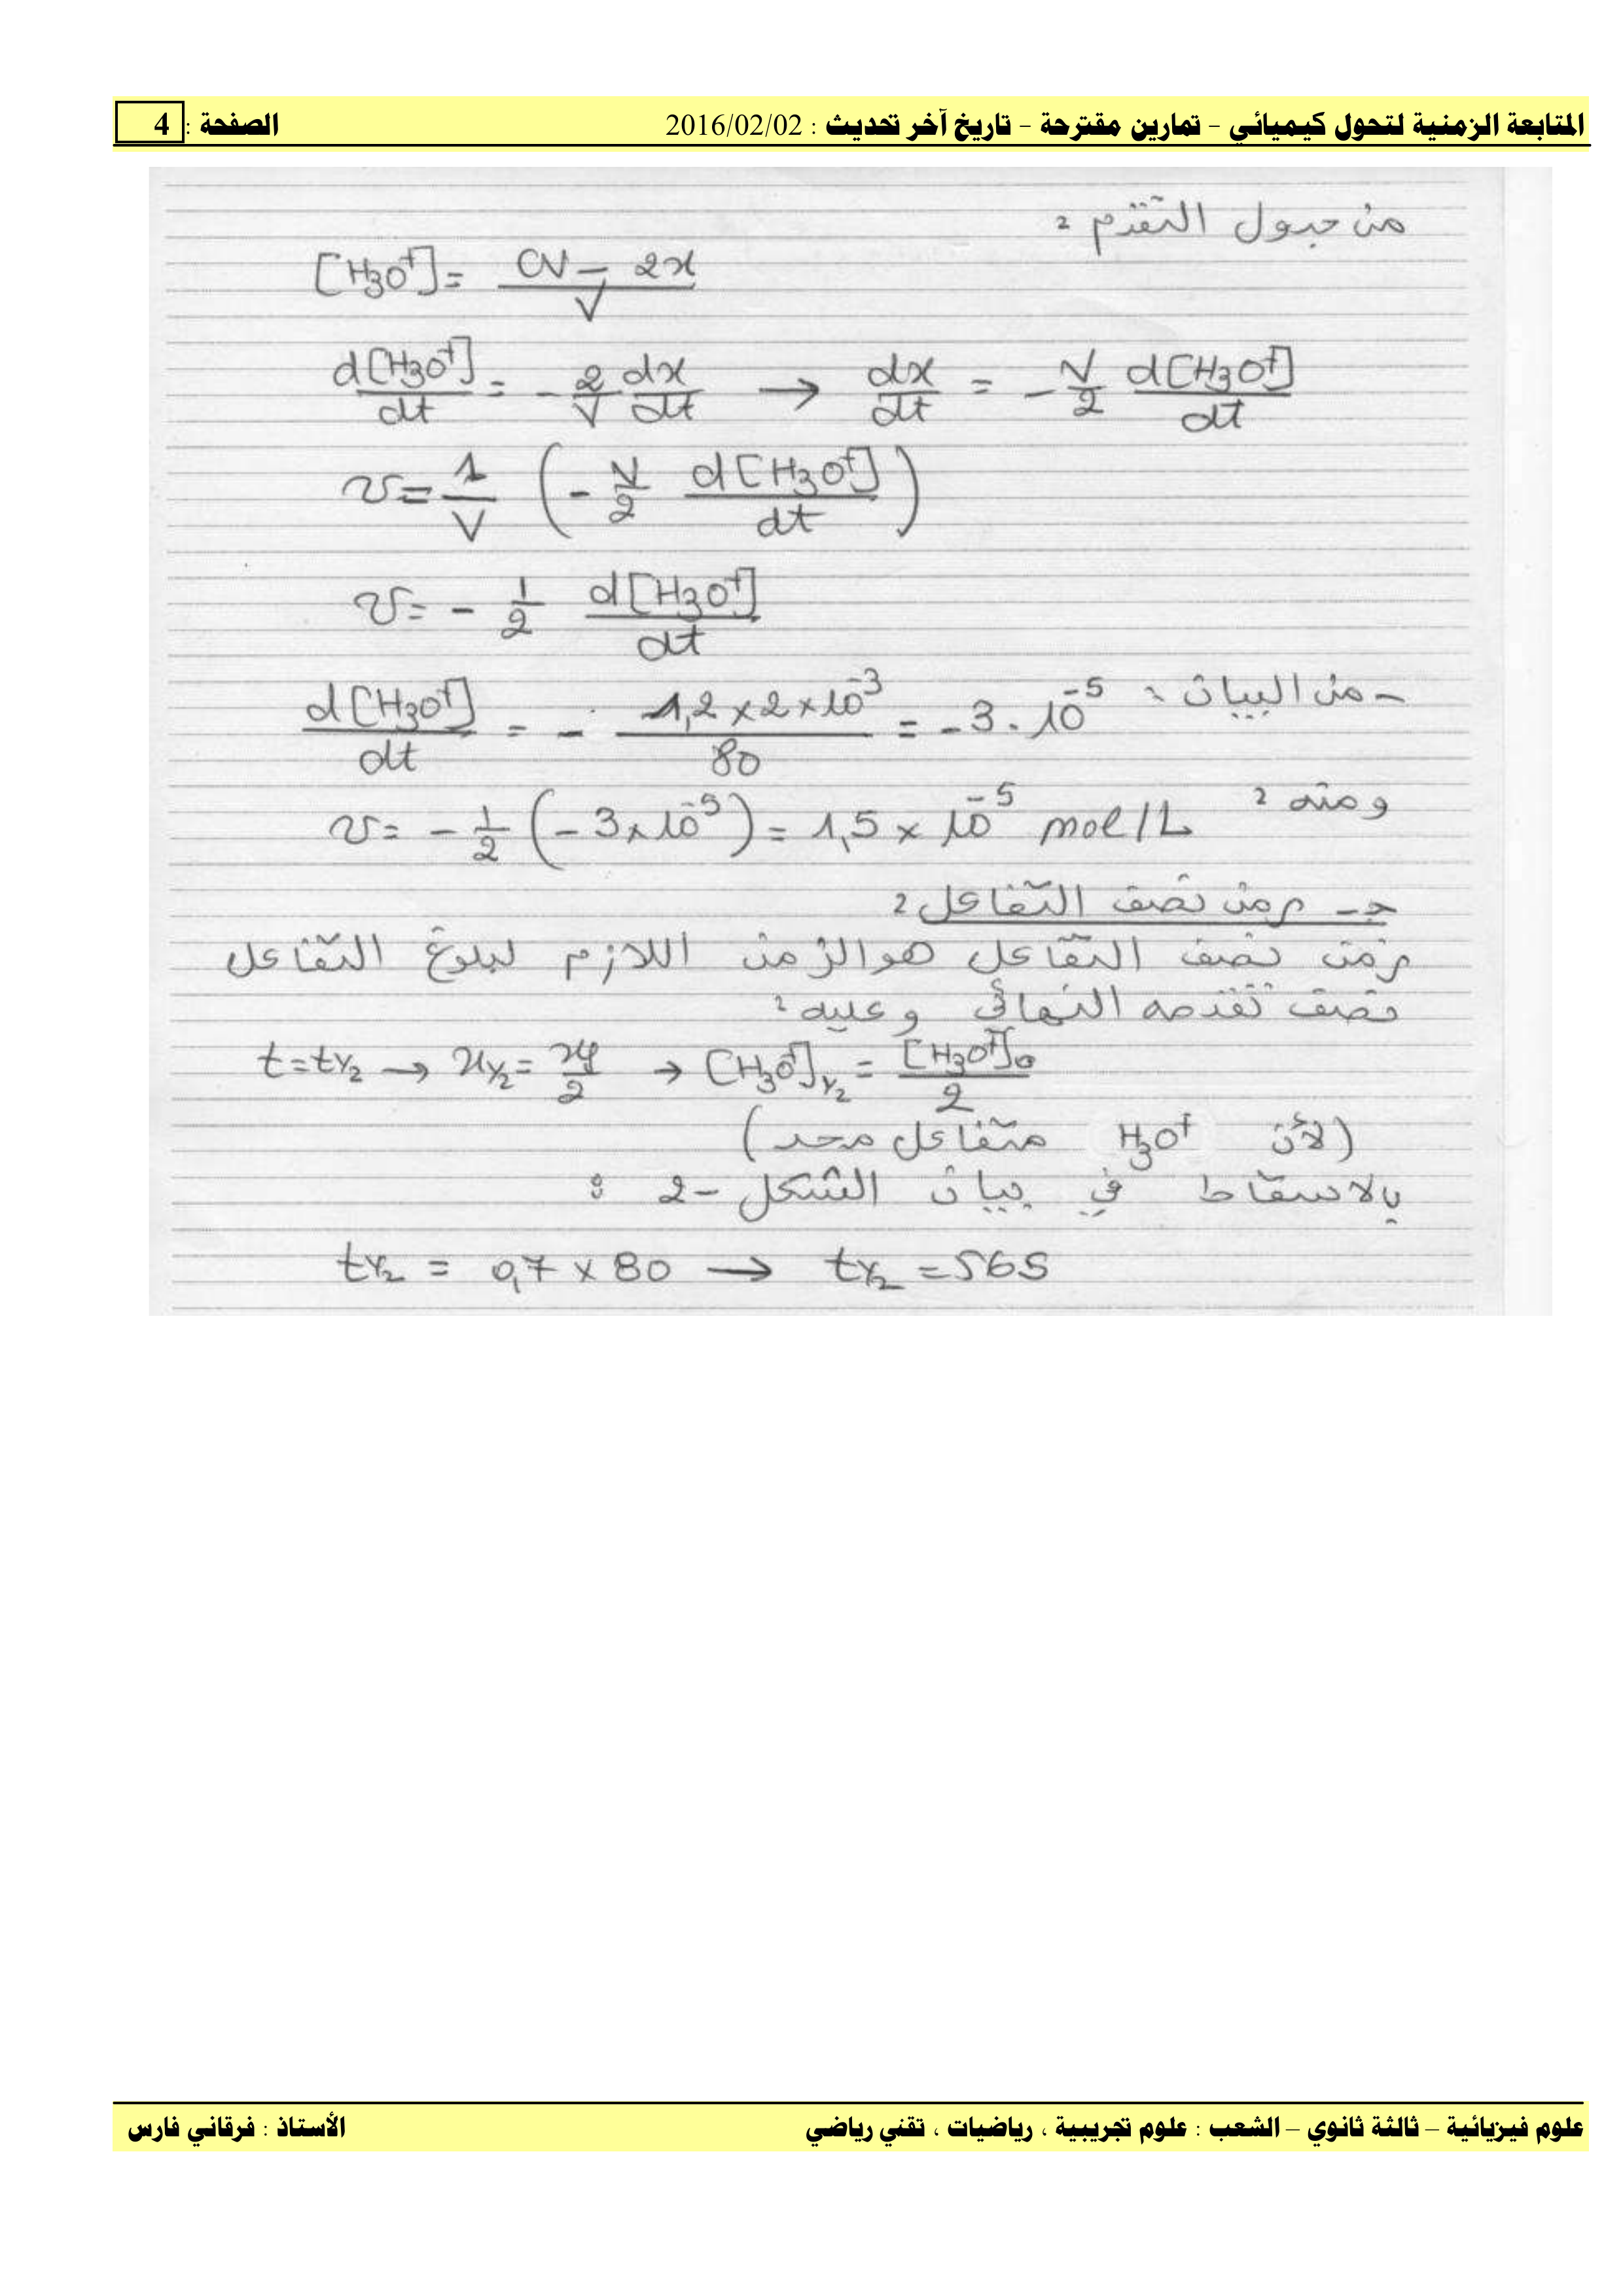 المتابعة الزمنية لتحول كيميائي – تمارين مقترحة – تاريخ آخر تحديث : 2016/02/02 الصفحة : 4
من جدول التقدم :
[H₃O⁺] = (CV – 2x) / V
d[H₃O⁺]/dt = – 2/V dx/dt → dx/dt = – V/2 d[H₃O⁺]/dt
v = 1/V (– V/2 d[H₃O⁺]/dt)
v = – 1/2 d[H₃O⁺]/dt
– من البيان : d[H₃O⁺]/dt = – (1,2 × 2 × 10⁻³) / 80 = – 3 . 10⁻⁵
ومنه : v = – 1/2 (– 3 × 10⁻⁵) = 1,5 × 10⁻⁵ mol/L
جـ – زمن نصف التفاعل :
زمن نصف التفاعل هو الزمن اللازم لبلوغ التفاعل
نصف تقدمه النهائي وعليه :
t = t₁/₂ → x₁/₂ = xf/2 → [H₃O⁺]₁/₂ = [H₃O⁺]₀ / 2
(لأن H₃O⁺ متفاعل محد)
بالاسقاط في بيان الشكل – 2 :
t₁/₂ = 0,7 × 80 → t₁/₂ = 56s
علوم فيزيائية – ثالثة ثانوي – الشعب : علوم تجريبية ، رياضيات ، تقني رياضي الأستاذ : فرقاني فارس